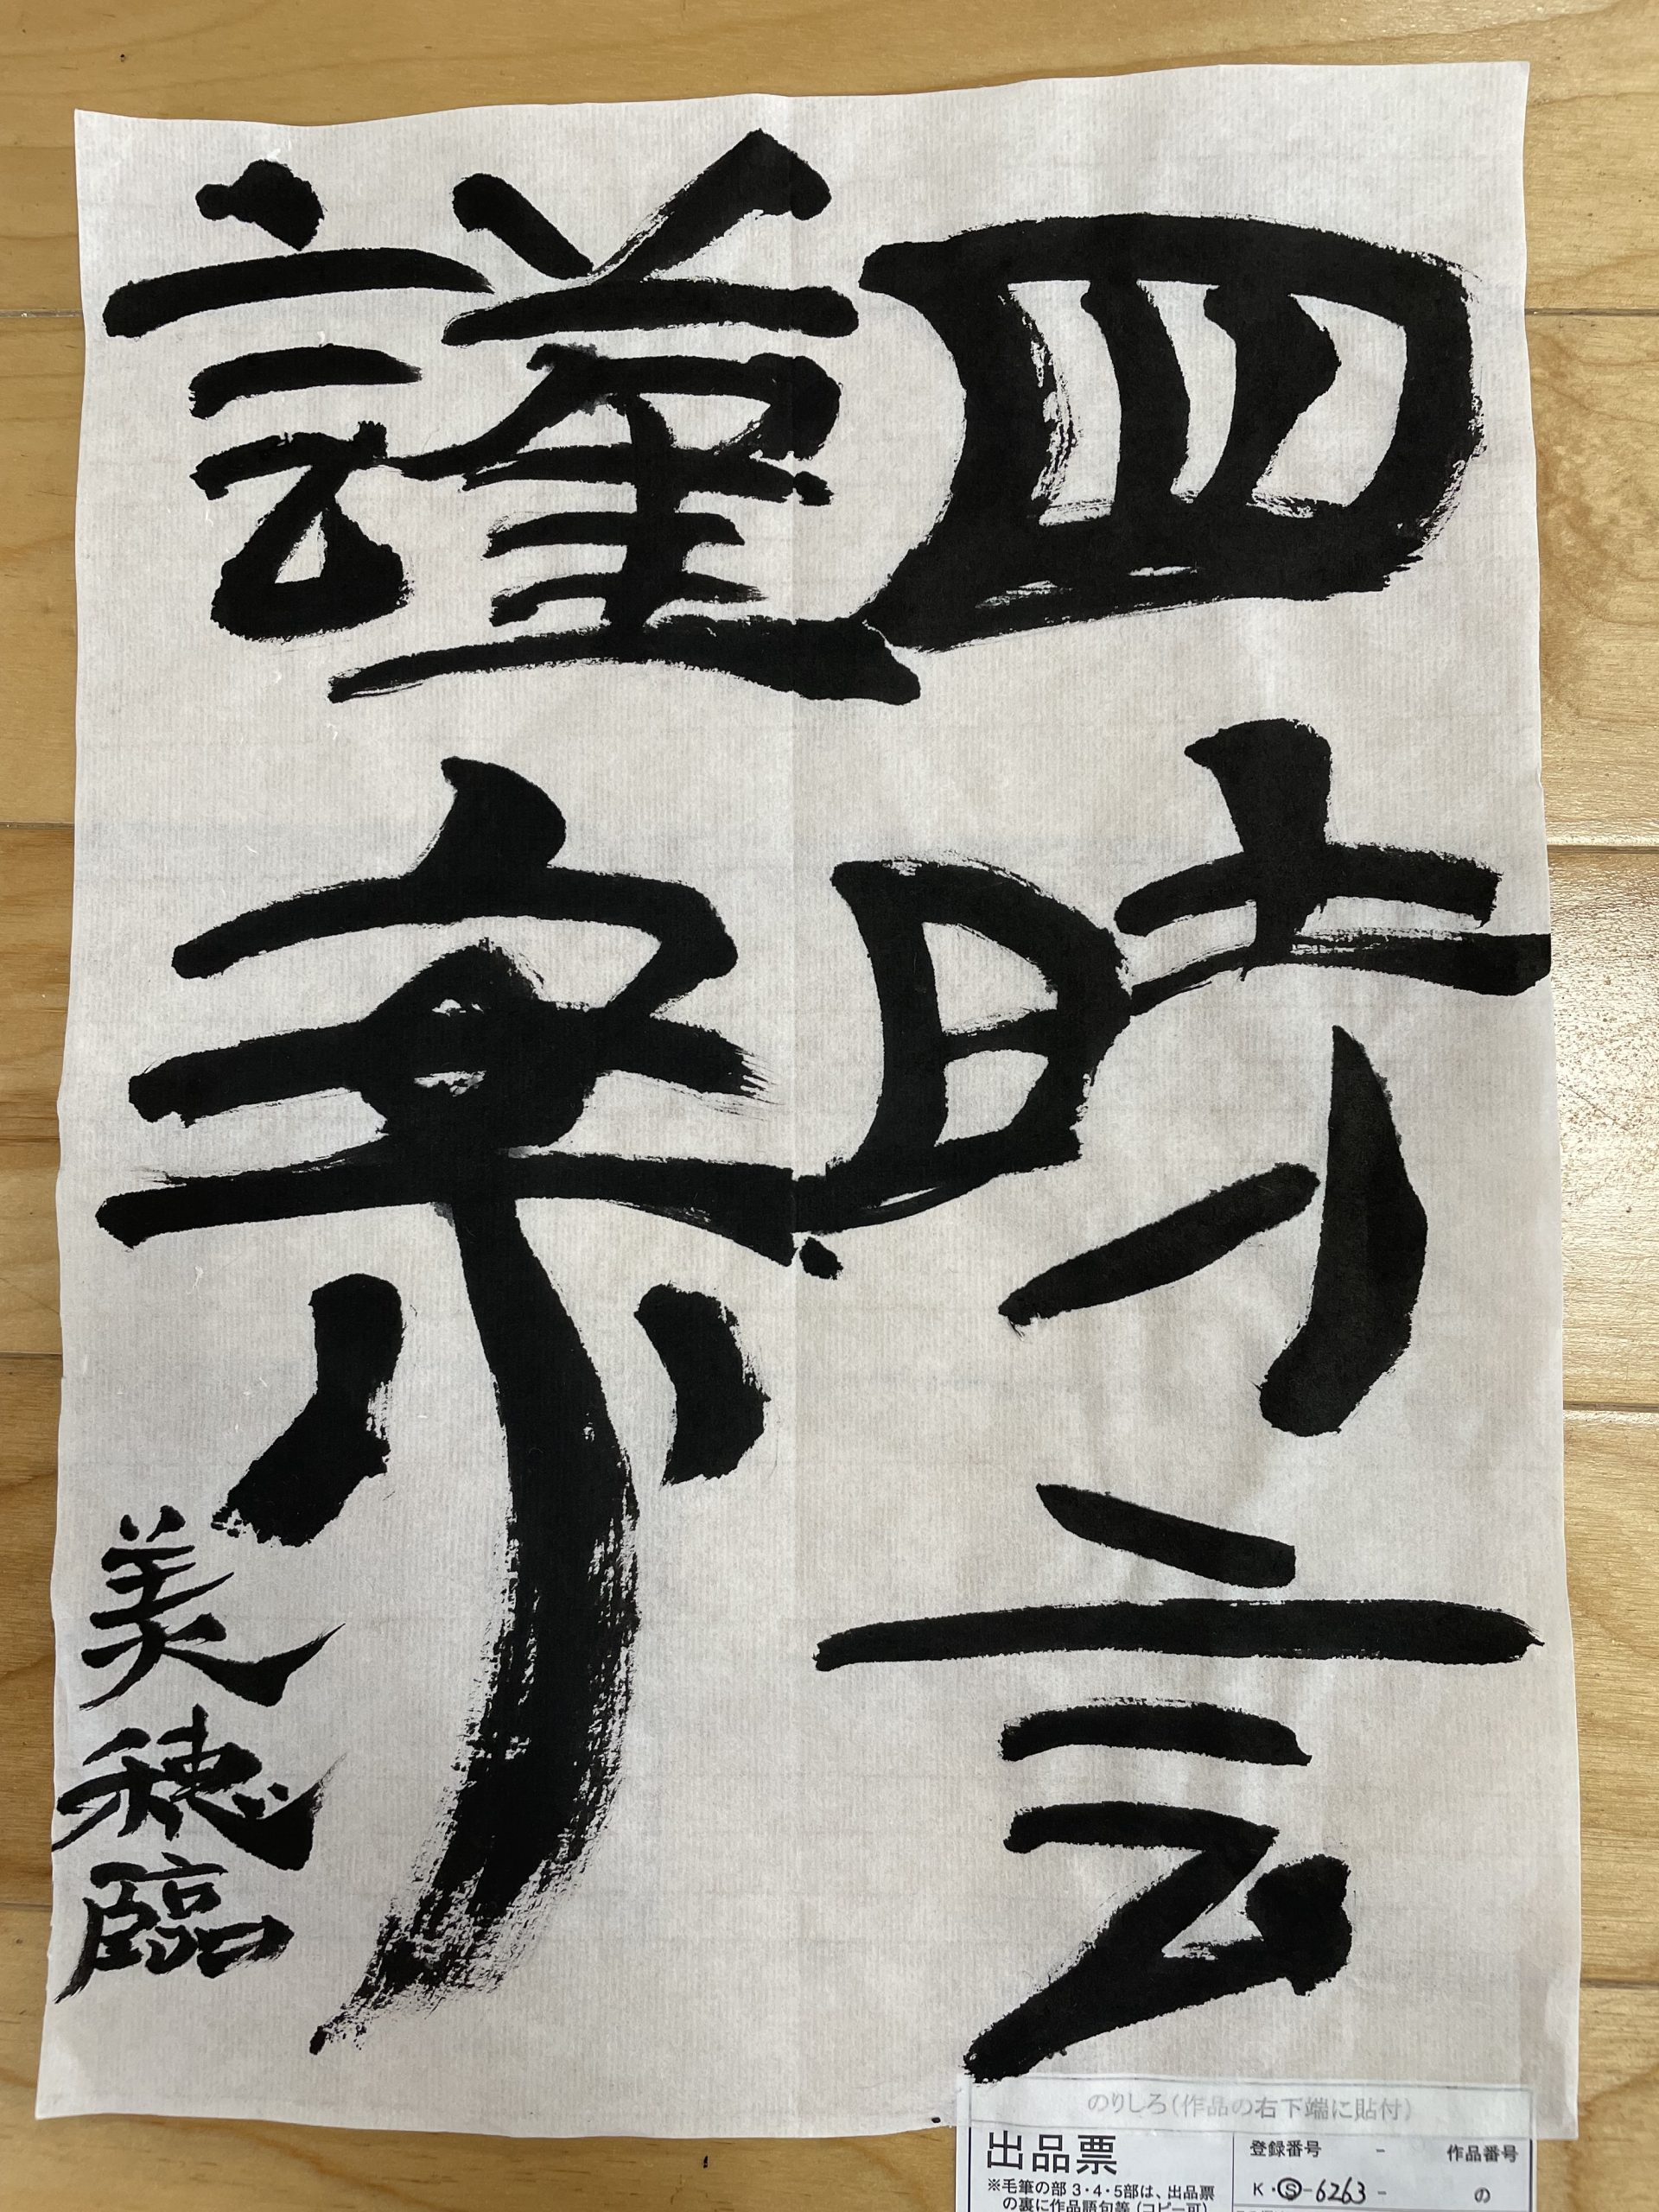 四時言
謹案
美穂臨
のりしろ(作品の右下端に貼付)
出品票
※毛筆の部3・4・5部は、出品票
の裏に作品語句等(コピー可)
登録番号 -
作品番号
K・Ⓢ-6263-
の